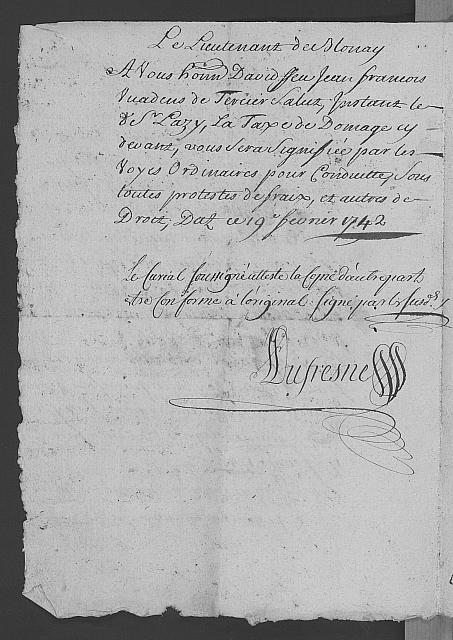 Le Lieutenant de Blonay
A Vous honn David ffeu Jean francois
Vuadens de Tercier Salut, Jnstant le
Sr Lazy, La Taxe de Domage cy
devant, vous sera signiffiée par les
Voyes Ordinaires pour Conduitte, Sous
toutes protestes de fraix, et autres de
Droit, Dat ce 19e fevrier 1742
Le Curial soussigné atteste la Copie d'autrepart
etre Conforme a l'original signé par
Dufresne